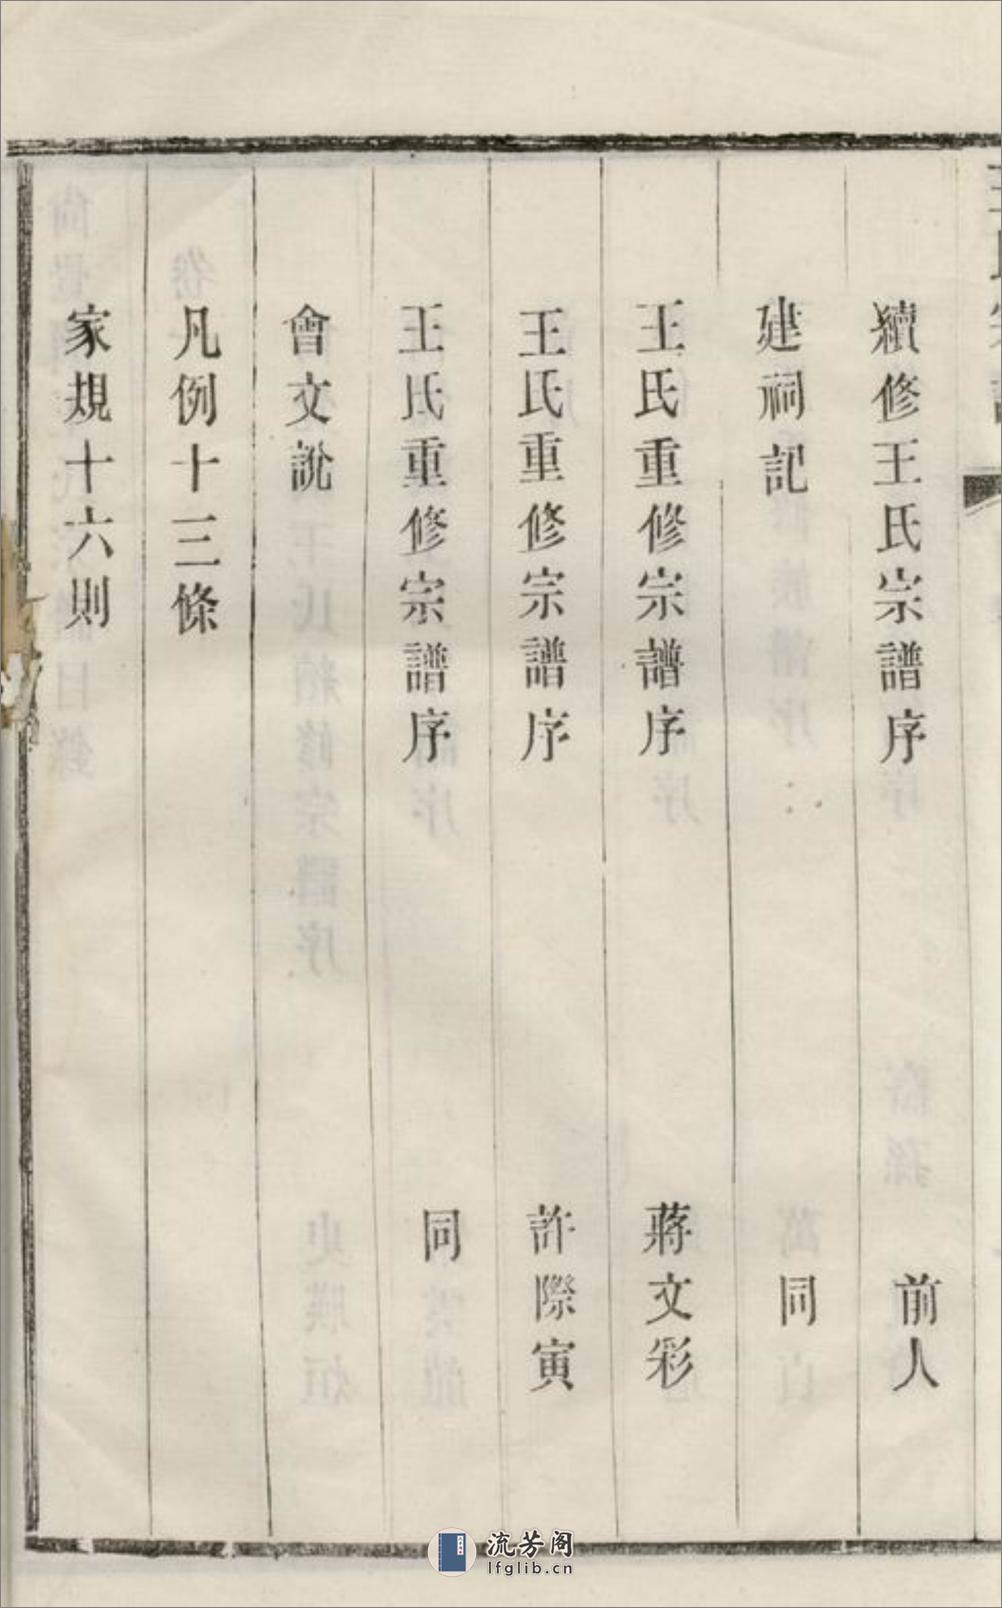 續修王氏宗譜序 前人
建祠記 同
王氏重修宗譜序 蔣文彩
王氏重修宗譜序 許際寅
王氏重修宗譜序 同
會文說
凡例十三條
家規十六則
流芳阁
lfglib.cn